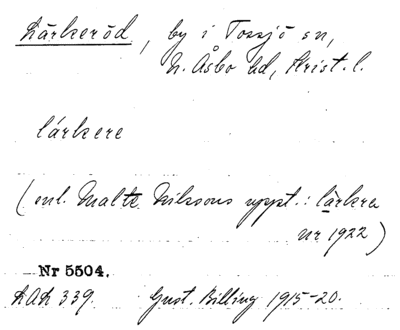 Lärkeröd, by i Tossjö sn,
N. Åsbo hd, Krist. l.
lárkere
(enl. Malte Nilssons uppt.: làrkra
nr 1922)
Nr 5504.
LAL 339. Gust. Billing 1915-20.